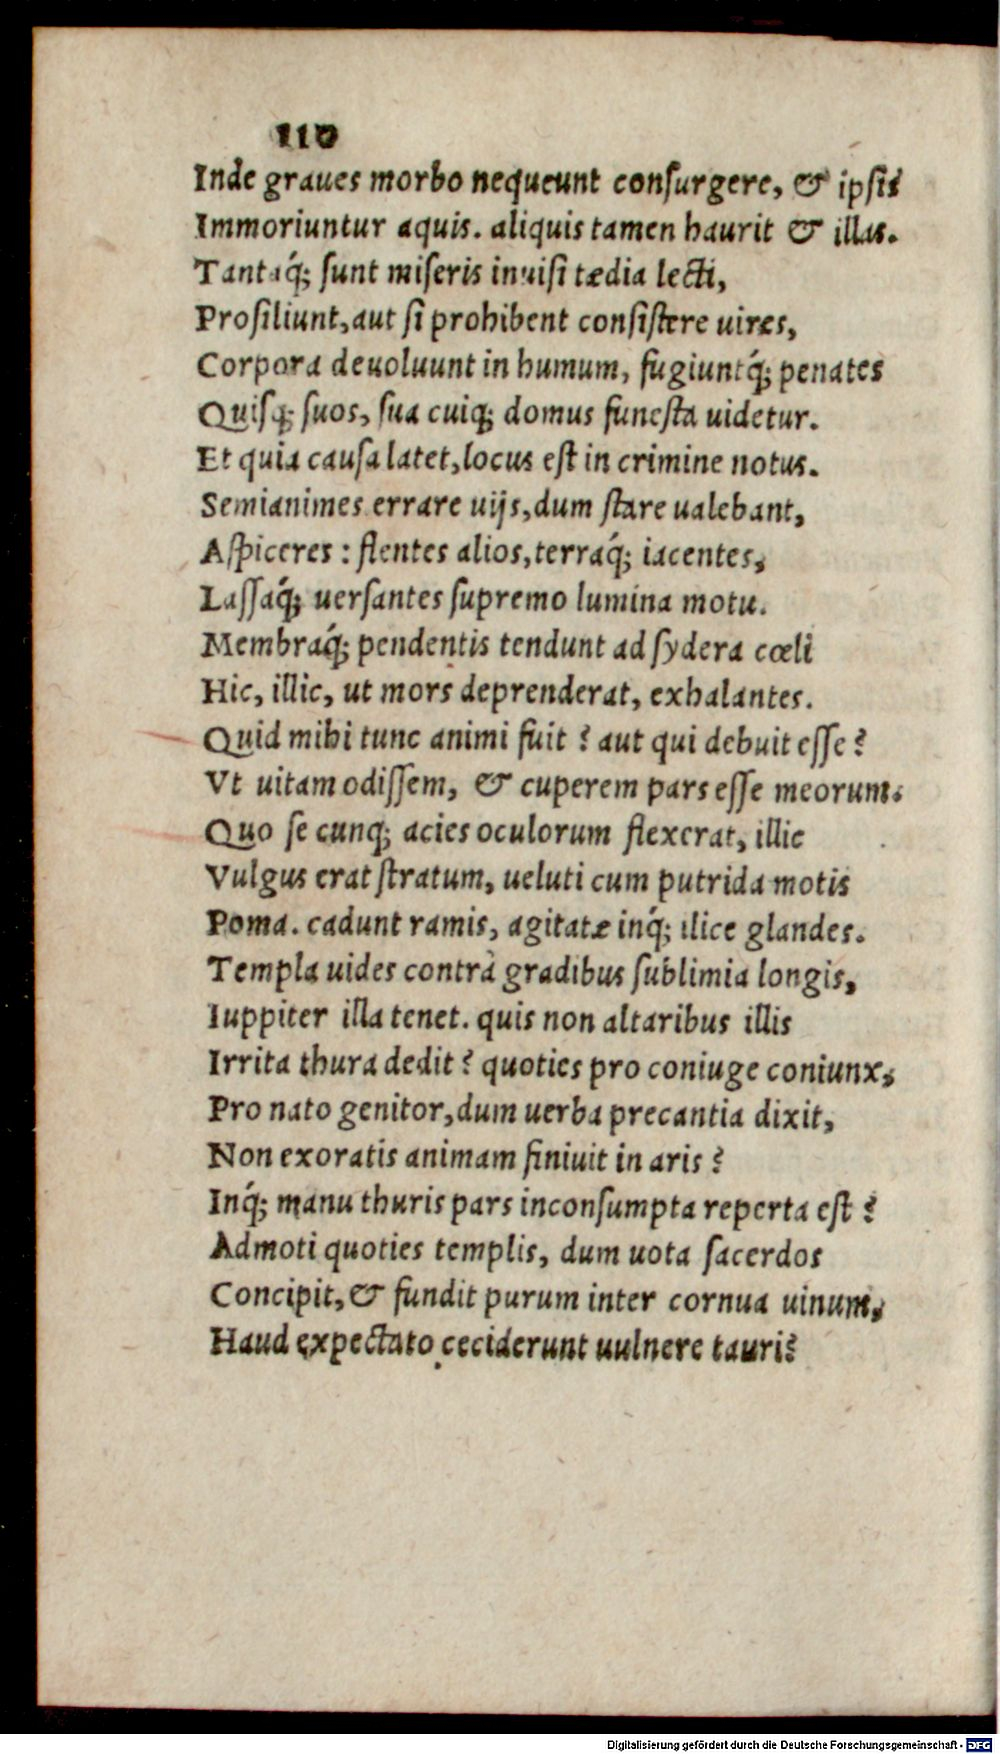 110
Inde graues morbo nequeunt consurgere, & ipsis
Immoriuntur aquis. aliquis tamen haurit & illas.
Tantaq́; sunt miseris inuisi tædia lecti,
Prosiliunt, aut si prohibent consistere uires,
Corpora deuoluunt in humum, fugiuntq́; penates
Quisq; suos, sua cuiq; domus funesta uidetur.
Et quia causa latet, locus est in crimine notus.
Semianimes errare uijs, dum stare ualebant,
Aspiceres: flentes alios, terraq́; iacentes,
Lassaq́; uersantes supremo lumina motu.
Membraq́; pendentis tendunt ad sydera cœli
Hic, illic, ut mors deprenderat, exhalantes.
Quid mihi tunc animi fuit? aut qui debuit esse?
Vt uitam odissem, & cuperem pars esse meorum.
Quo se cunq; acies oculorum flexerat, illic
Vulgus erat stratum, ueluti cum putrida motis
Poma. cadunt ramis, agitatæ inq́; ilice glandes.
Templa uides contrà gradibus sublimia longis,
Iuppiter illa tenet. quis non altaribus illis
Irrita thura dedit? quoties pro coniuge coniunx,
Pro nato genitor, dum uerba precantia dixit,
Non exoratis animam finiuit in aris?
Inq́; manu thuris pars inconsumpta reperta est?
Admoti quoties templis, dum uota sacerdos
Concipit, & fundit purum inter cornua uinum,
Haud expectato ceciderunt uulnere tauri?
Digitalisierung gefördert durch die Deutsche Forschungsgemeinschaft - DFG